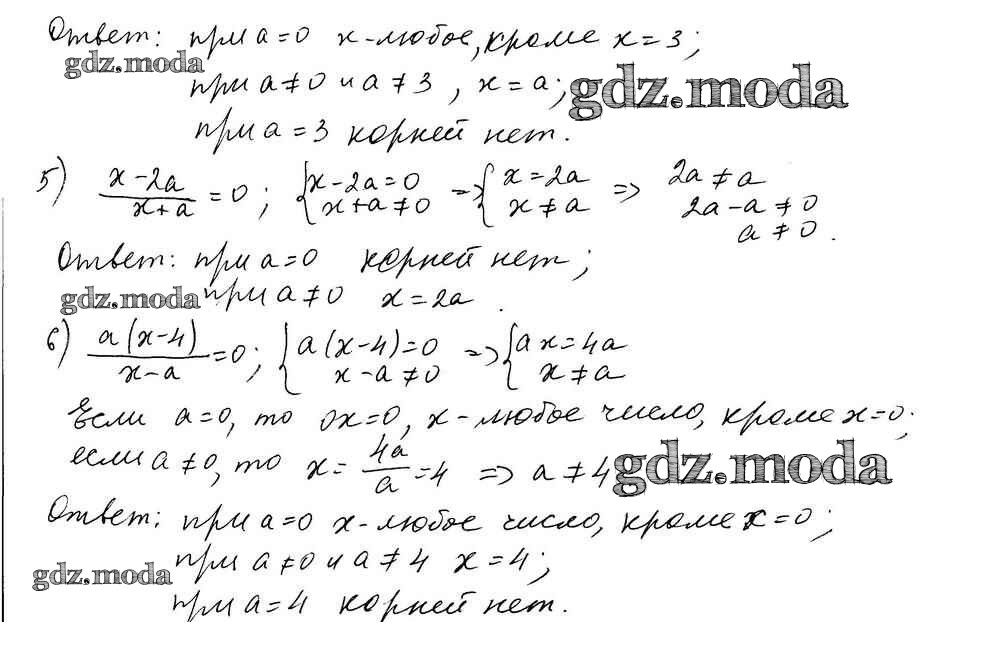 Ответ: при a=0 x-любое, кроме x=3;
gdz.moda
при a≠0 и a≠3, x=a;
gdz.moda
при a=3 корней нет.
5) (x-2a)/(x+a) = 0; {x-2a=0 x+a≠0 => {x=2a x≠a => 2a≠a
2a-a≠0
a≠0.
Ответ: при a=0 корней нет;
gdz.moda
при a≠0 x=2a.
6) a(x-4)/(x-a) = 0; {a(x-4)=0 x-a≠0 => {ax=4a x≠a
Если a=0, то 0x=0, x-любое число, кроме x=0;
если a≠0, то x= 4a/a =4 => a≠4
gdz.moda
Ответ: при a=0 x-любое число, кроме x=0;
при a≠0 и a≠4 x=4;
gdz.moda
при a=4 корней нет.